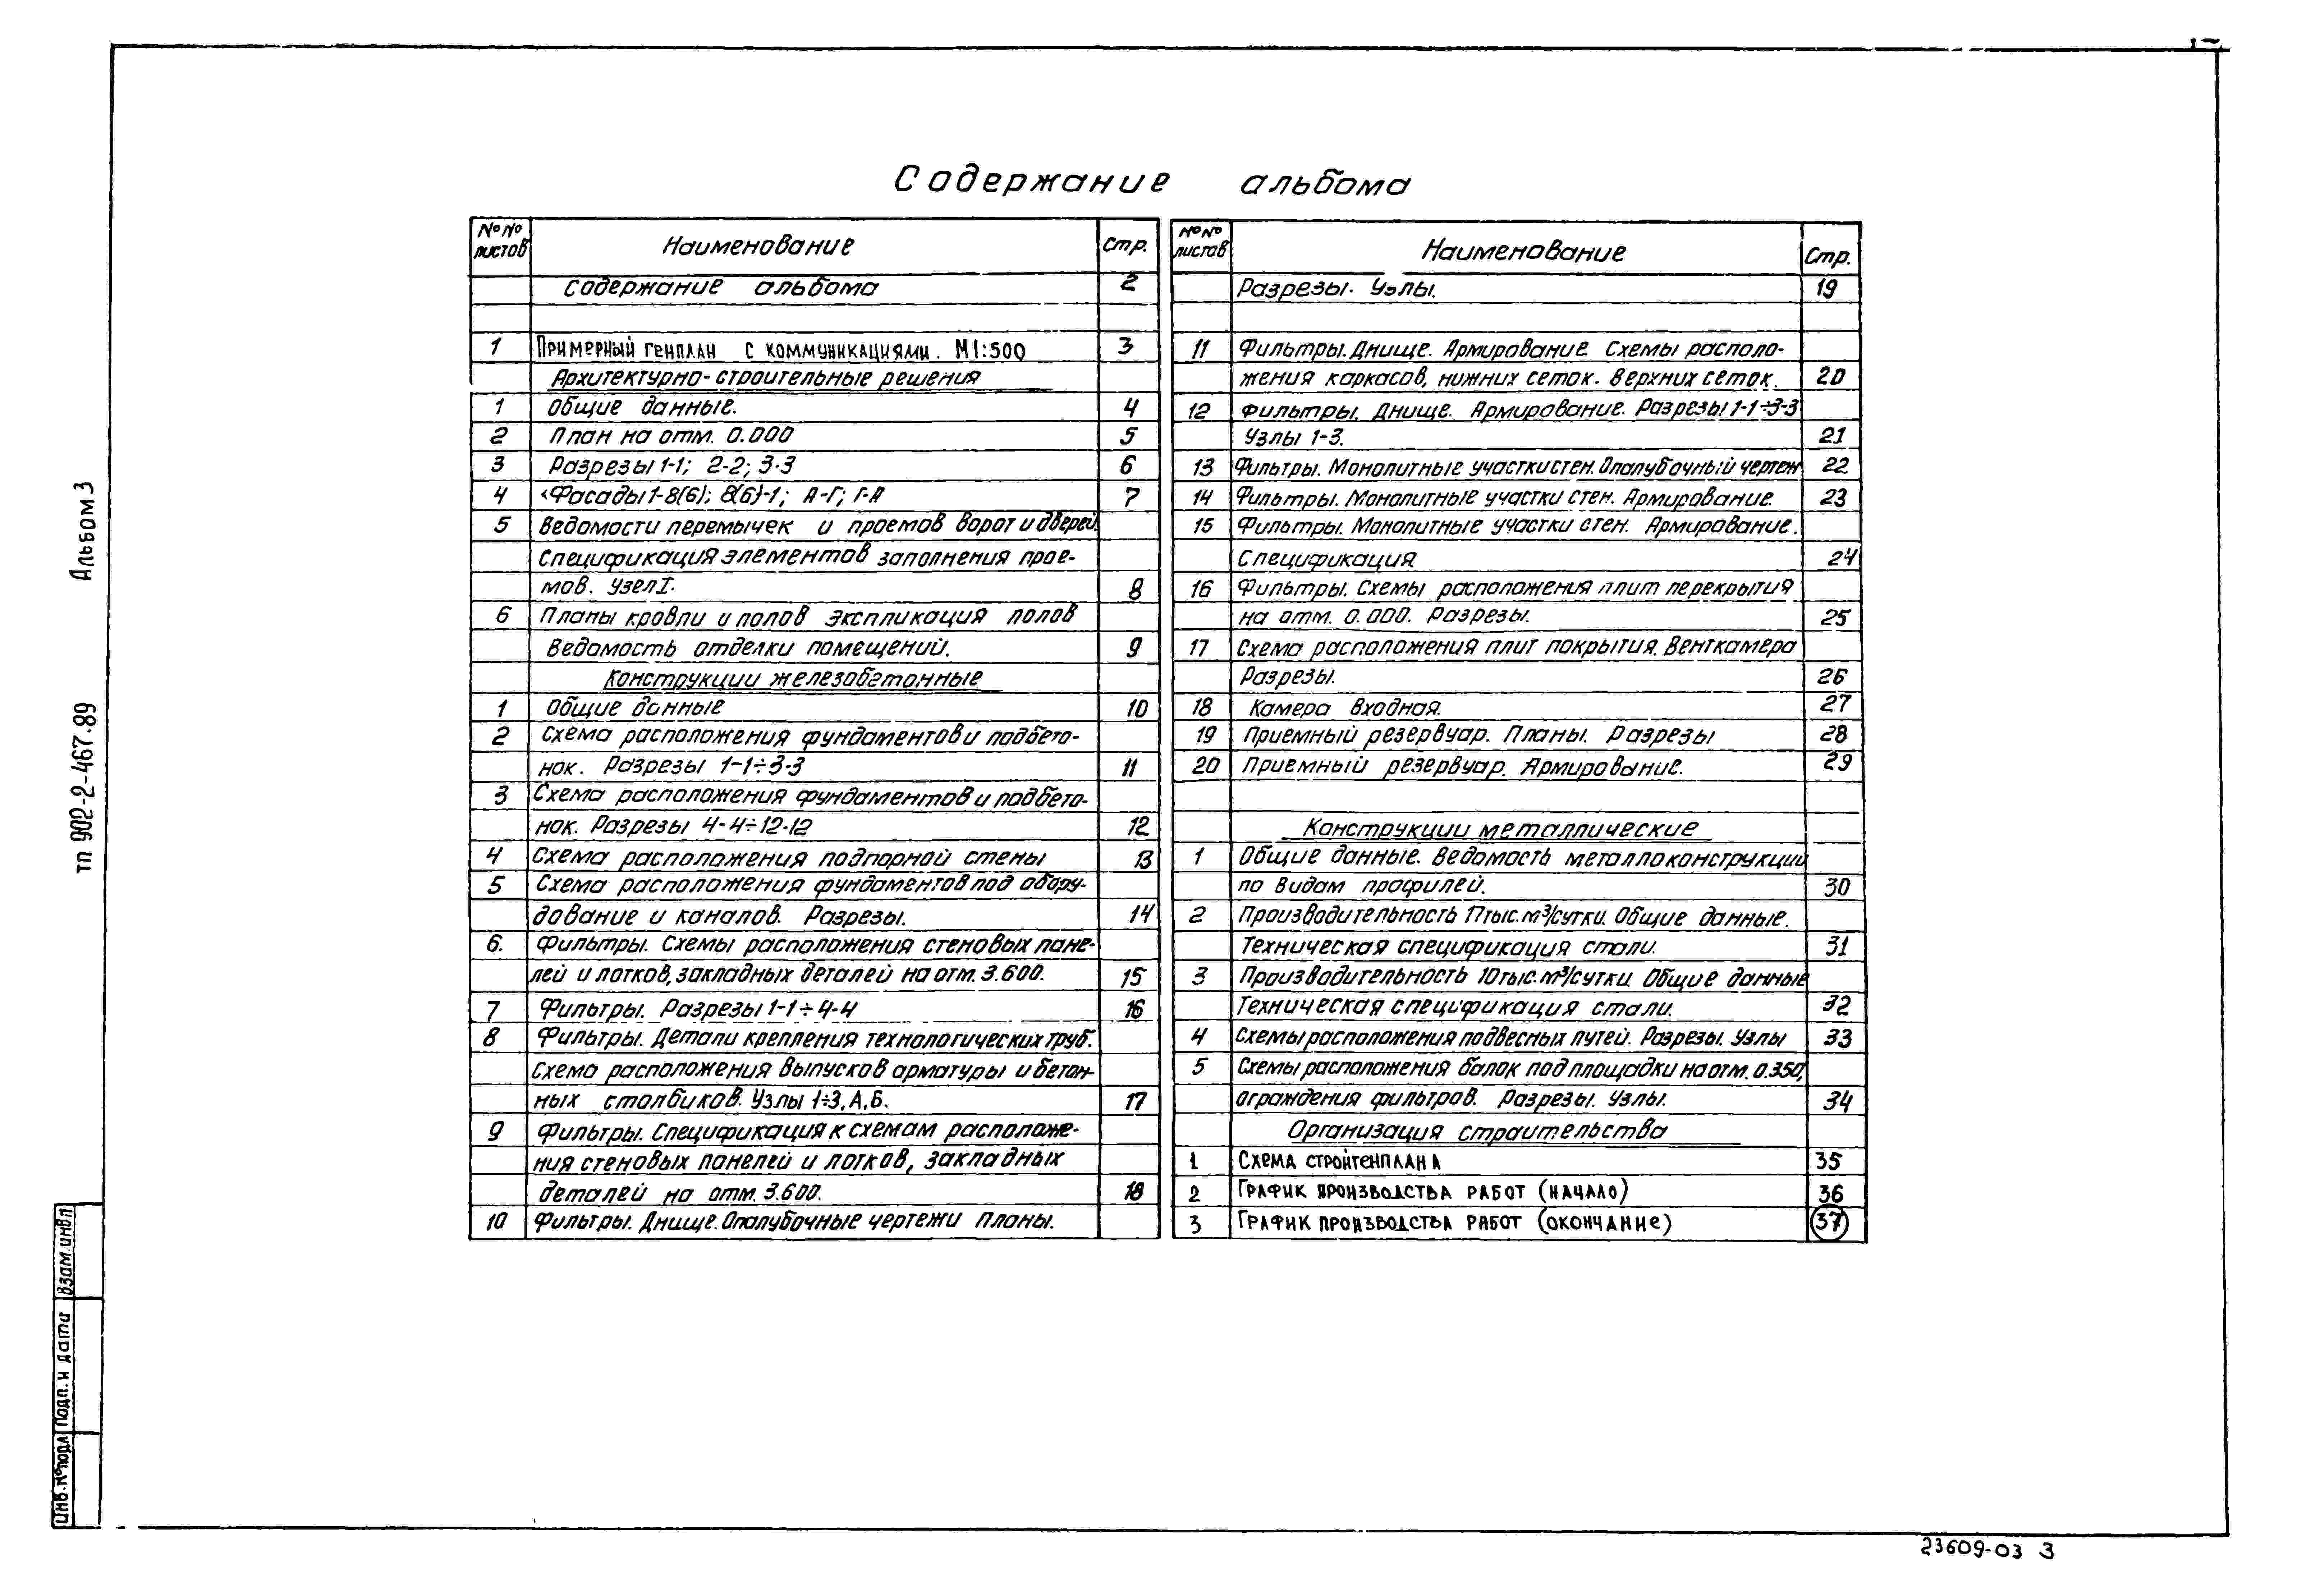 Содержание альбома
№№ листов Наименование Стр.
Содержание альбома 2
1 Примерный генплан с коммуникациями. М1:500 3
Архитектурно-строительные решения
1 Общие данные. 4
2 План на отм. 0.000 5
3 Разрезы 1-1; 2-2; 3-3 6
4 Фасады 1-8(6); 8(6)-1; А-Г; Г-А 7
5 Ведомости перемычек и проемов ворот и дверей.
Спецификация элементов заполнения прое-
мов. Узел I. 8
6 Планы кровли и полов Экспликация полов
Ведомость отделки помещений. 9
Конструкции железобетонные
1 Общие данные 10
2 Схема расположения фундаментов и подбето-
нок. Разрезы 1-1÷3-3 11
3 Схема расположения фундаментов и подбето-
нок. Разрезы 4-4÷12-12 12
4 Схема расположения подпорной стены 13
5 Схема расположения фундаментов под обору-
дование и каналов. Разрезы. 14
6. Фильтры. Схемы расположения стеновых пане-
лей и лотков, закладных деталей на отм. 3.600. 15
7 Фильтры. Разрезы 1-1÷4-4 16
8 Фильтры. Детали крепления технологических труб.
Схема расположения выпусков арматуры и бетон-
ных столбиков. Узлы 1÷3, А, Б. 17
9 Фильтры. Спецификация к схемам расположе-
ния стеновых панелей и лотков, закладных
деталей на отм. 3.600. 18
10 Фильтры. Днище. Опалубочные чертежи Планы.
№№ листов Наименование Стр.
Разрезы. Узлы. 19
11 Фильтры. Днище. Армирование. Схемы располо-
жения каркасов, нижних сеток. Верхних сеток. 20
12 Фильтры. Днище. Армирование. Разрезы 1-1÷3-3
Узлы 1-3. 21
13 Фильтры. Монолитные участки стен. Опалубочный чертеж 22
14 Фильтры. Монолитные участки стен. Армирование. 23
15 Фильтры. Монолитные участки стен. Армирование.
Спецификация 24
16 Фильтры. Схемы расположения плит перекрытия
на отм. 0.000. Разрезы. 25
17 Схема расположения плит покрытия. Венткамера
Разрезы. 26
18 Камера входная. 27
19 Приемный резервуар. Планы. Разрезы 28
20 Приемный резервуар. Армирование. 29
Конструкции металлические
1 Общие данные. Ведомость металлоконструкций
по видам профилей. 30
2 Производительность 17тыс.м³/сутки. Общие данные.
Техническая спецификация стали. 31
3 Производительность 10тыс.м³/сутки. Общие данные
Техническая спецификация стали. 32
4 Схемы расположения подвесных путей. Разрезы. Узлы 33
5 Схемы расположения балок под площадки на отм. 0.350,
ограждения фильтров. Разрезы. Узлы. 34
Организация строительства
1 Схема стройгенплана 35
2 График производства работ (начало) 36
3 График производства работ (окончание) 37
Альбом 3
тп 902-2-467.89
Взам.инв.№
Подп. и дата
Инв.№подл
23609-03 3